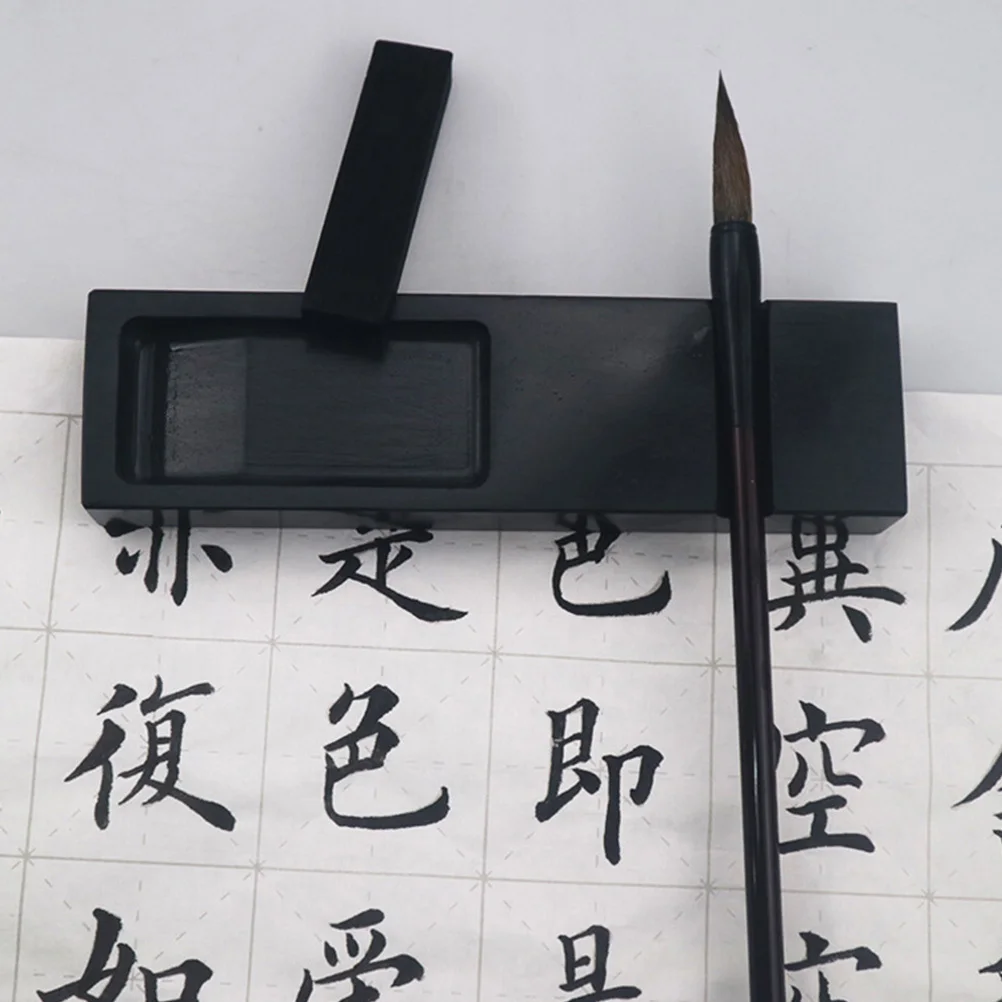 異空空
色即是
是色受
亦復如